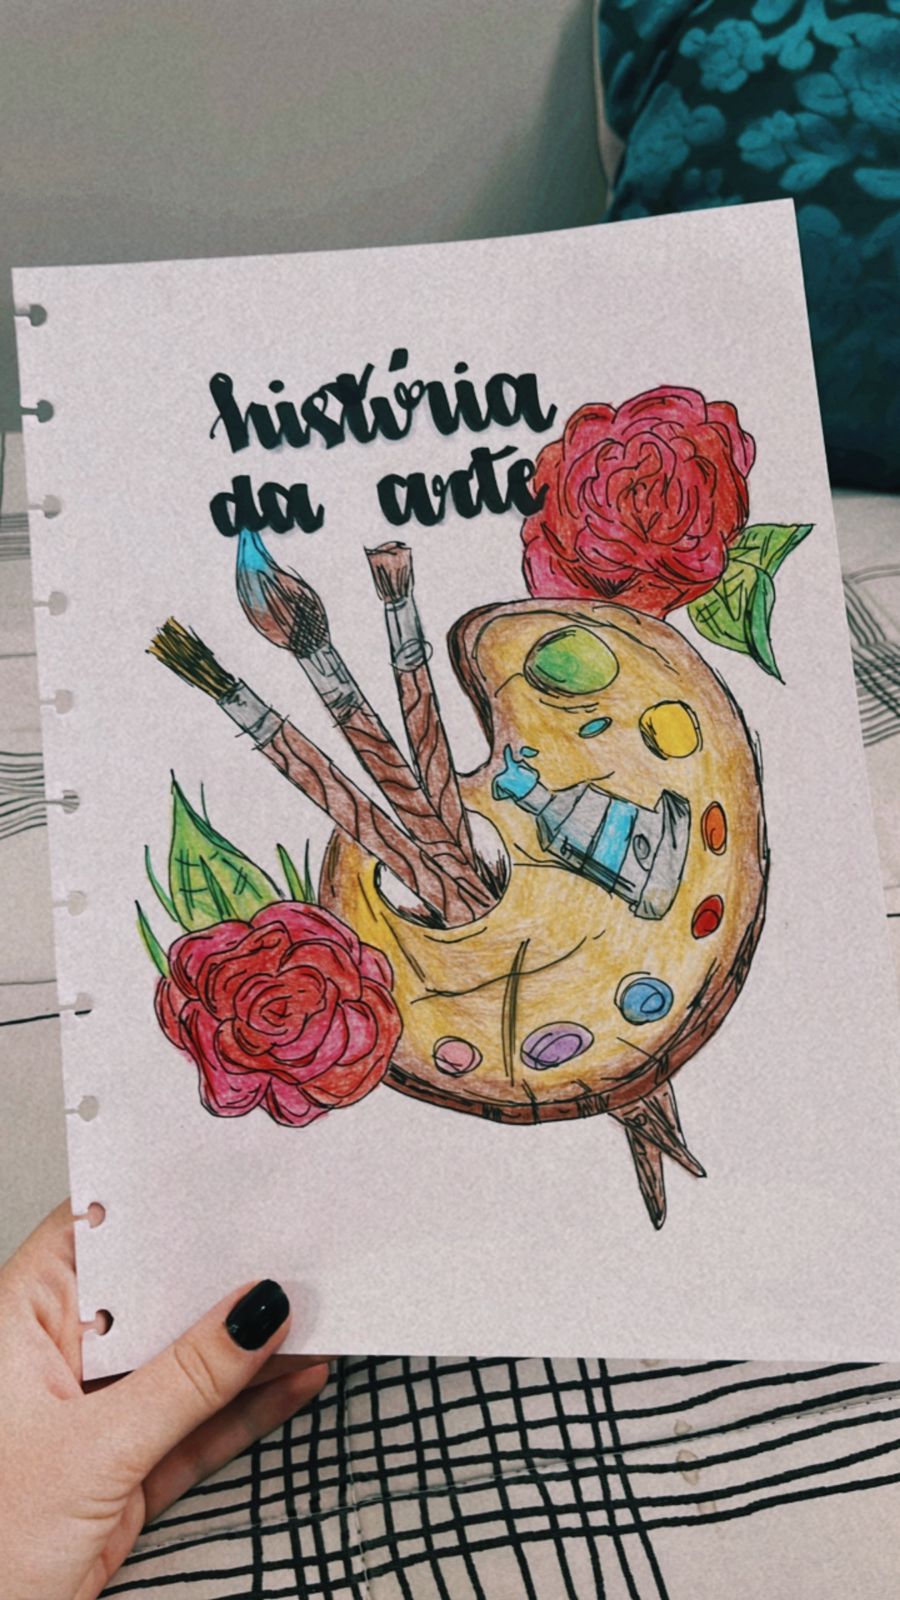 história
da arte